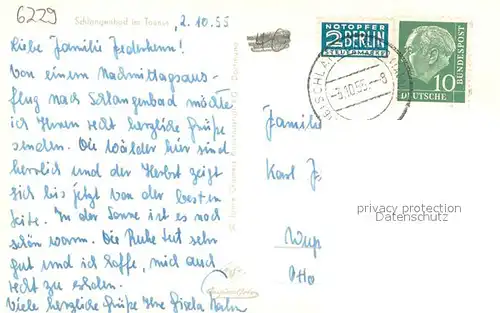 6229
Schlangenbad im Taunus
, 2.10.55
Liebe Familie
Von einem Nachmittagsaus-
flug nach Schlangenbad möchte
ich Ihnen recht herzliche Grüße
senden. Die Wälder hier sind
herrlich und der Herbst zeigt
sich bis jetzt von der besten
Seite. In der Sonne ist es noch
schön warm. Die Ruhe tut sehr
gut und ich hoffe, mich auch
recht zu erholen.
Viele herzliche Grüße Ihre Gisela
NOTOPFER
2 BERLIN
STEUERMARKE
10
DEUTSCHE
BUNDESPOST
Familie
Karl J.
Wup
Otto
privacy protection
Datenschutz